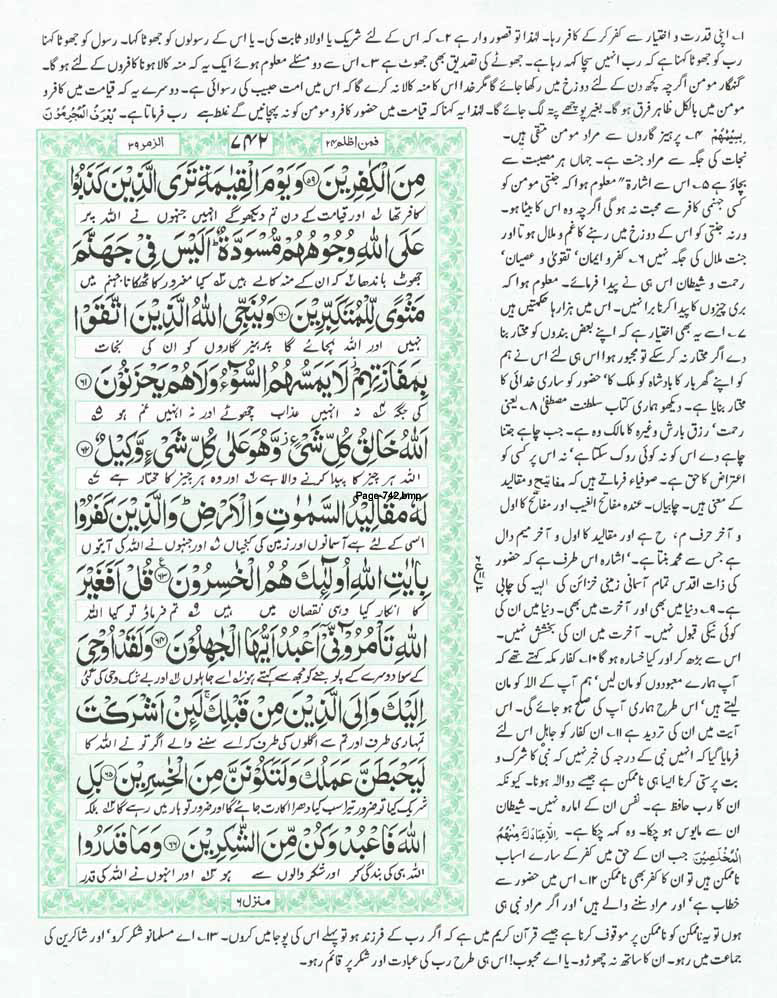 ۱۔ اپنی قدرت و اختیار سے کفر کر کے کافر رہا۔ لہٰذا تو قصور وار ہے ۲۔ کہ اس کے لئے شریک یا اولاد ثابت کی۔ یا اس کے رسولوں کو جھوٹا کہا۔ رسول کو جھوٹا کہنا
رب کو جھوٹا کہنا ہے کہ رب انہیں سچا کہہ رہا ہے۔ جھوٹے کی تصدیق بھی جھوٹ ہے ۳۔ اس سے دو مسئلے معلوم ہوئے ایک یہ کہ منہ کالا ہونا کافروں کے لئے ہو گا۔
گنہگار مومن اگرچہ کچھ دن کے لئے دوزخ میں رکھا جائے گا مگر خدا اس کا منہ کالا نہ کرے گا کہ اس میں امت حبیب کی رسوائی ہے۔ دوسرے یہ کہ قیامت میں کافر و
مومن میں بالکل ظاہر فرق ہو گا۔ بغیر پوچھے پتہ لگ جائے گا۔ لہٰذا یہ کہنا کہ قیامت میں حضور کافر و مومن کو نہ پہچانیں گے غلط ہے رب فرماتا ہے۔ یُعْرَفُ الْمُجْرِمُوْنَ
بِسِیْمٰهُمْ ۴۔ پرہیز گاروں سے مراد مومن متقی ہیں۔
نجات کی جگہ سے مراد جنت ہے۔ جہاں ہر مصیبت سے
بچاؤ ہے ۵۔ اس سے اشارۃً معلوم ہوا کہ جنتی مومن کو
کسی جہنمی کافر سے محبت نہ ہو گی اگرچہ وہ اس کا بیٹا ہو۔
ورنہ جنتی کو اس کے دوزخ میں رہنے کا غم و ملال ہوتا اور
جنت ملال کی جگہ نہیں ۶۔ کفر و ایمان، تقویٰ و عصیان،
رحمت و شیطان اس ہی نے پیدا فرمائے۔ معلوم ہوا کہ
بری چیزوں کا پیدا کرنا برا نہیں۔ اس میں ہزارہا حکمتیں ہیں
۷۔ اسے یہ بھی اختیار ہے کہ اپنے بعض بندوں کو مختار بنا
دے اگر مختار نہ کر سکے تو مجبور ہوا اس ہی لئے اس نے ہم
کو اپنے گھر بار کا بادشاہ کو ملک کا، حضور کو ساری خدائی کا
مختار بنایا ہے۔ دیکھو ہماری کتاب سلطنت مصطفیٰ ۸۔ یعنی
رحمت، رزق بارش وغیرہ کا مالک وہ ہے۔ جب چاہے جتنا
چاہے دے اس کو نہ کوئی روک سکتا ہے، نہ اس پر کسی کو
اعتراض کا حق ہے۔ صوفیاء فرماتے ہیں کہ مفاتیح و مقالید
کے معنی ہیں۔ چابیاں۔ عندہ مفاتح الغیب اور مفاتح کا اول
و آخر حرف م، ح ہے اور مقالید کا اول و آخر میم دال
ہے جس سے محمد بنتا ہے۔ اشارہ اس طرف ہے کہ حضور
کی ذات اقدس تمام آسمانی زمینی خزائن کی الہیہ کی چابی
ہے۔ ۹۔ دنیا میں بھی اور آخرت میں بھی۔ دنیا میں ان کی
کوئی نیکی قبول نہیں۔ آخرت میں ان کی بخشش نہیں۔
اس سے بڑھ کر اور کیا خسارہ ہو گا ۱۰۔ کفار مکہ کہتے تھے کہ
آپ ہمارے معبودوں کو مان لیں، ہم آپ کے الٰہ کو مان
لیتے ہیں، اس طرح ہماری آپ کی صلح ہو جائے گی۔ اس
آیت میں ان کی تردید ہے ۱۱۔ ان کفار کو جاہل اس لئے
فرمایا گیا کہ انہیں نبی کے درجہ کی خبر نہیں کہ نبی کا شرک و
بت پرستی کرنا ایسا ہی ناممکن ہے جیسے دو الٰہ ہونا۔ کیونکہ
ان کا رب حافظ ہے۔ نفس ان کے امارہ نہیں۔ شیطان
ان سے مایوس ہو چکا۔ وہ کہہ چکا ہے۔ اِلَّا عِبَادَكَ مِنْهُمُ
الْمُخْلَصِیْنَ جب ان کے حق میں کفر کے سارے اسباب
ناممکن ہیں تو ان کا کفر بھی ناممکن ۱۲۔ اس میں حضور سے
خطاب ہے، اور مراد سننے والے ہیں، اور اگر مراد نبی ہی
ہوں تو یہ ناممکن کو ناممکن پر موقوف کرنا ہے جیسے قرآن کریم میں ہے کہ اگر رب کے فرزند ہو تو پہلے اس کی پوجا میں کروں۔ ۱۳۔ اے مسلمانو شکر کرو، اور شاکرین کی
جماعت میں رہو۔ ان کا ساتھ نہ چھوڑو۔ یا اے محبوب! اس ہی طرح رب کی عبادت اور شکر پر قائم رہو۔
فمن اظلم ۲۴
۷۴۲
الزمر ۳۹
مِنَ الْكٰفِرِیْنَ ۵۹ وَیَوْمَ الْقِیٰمَةِ تَرَى الَّذِیْنَ كَذَبُوْا
کافر تھا اور قیامت کے دن تم دیکھو گے انہیں جنہوں نے اللہ پر
عَلَى اللّٰهِ وُجُوْهُهُمْ مُّسْوَدَّةٌ ؕ اَلَیْسَ فِیْ جَهَنَّمَ
جھوٹ باندھا کہ ان کے منہ کالے ہیں کیا مغرور کا ٹھکانا جہنم میں
مَثْوًى لِّلْمُتَكَبِّرِیْنَ ۶۰ وَیُنَجِّی اللّٰهُ الَّذِیْنَ اتَّقَوْا
نہیں اور اللہ بچائے گا پرہیزگاروں کو ان کی نجات
بِمَفَازَتِهِمْ ؗ لَا یَمَسُّهُمُ السُّوْٓءُ وَلَا هُمْ یَحْزَنُوْنَ ۶۱
کی جگہ نہ انہیں عذاب چھوئے اور نہ انہیں غم ہو
اَللّٰهُ خَالِقُ كُلِّ شَیْءٍ ؗ وَّهُوَ عَلٰى كُلِّ شَیْءٍ وَّكِیْلٌ ۶۲
اللہ ہر چیز کا پیدا کرنے والا ہے اور وہ ہر چیز کا مختار ہے
Page-742.bmp
لَهٗ مَقَالِیْدُ السَّمٰوٰتِ وَالْاَرْضِ ؕ وَالَّذِیْنَ كَفَرُوْا
اسی کے لئے ہے آسمانوں اور زمین کی کنجیاں اور جنہوں نے اللہ کی آیتوں
بِاٰیٰتِ اللّٰهِ اُولٰٓئِكَ هُمُ الْخٰسِرُوْنَ ۶۳ قُلْ اَفَغَیْرَ
کا انکار کیا وہی نقصان میں ہیں تم فرماؤ تو کیا اللہ
اللّٰهِ تَاْمُرُوْٓنِّیْۤ اَعْبُدُ اَیُّهَا الْجٰهِلُوْنَ ۶۴ وَلَقَدْ اُوْحِیَ
کے سوا دوسرے کے پوجنے کو مجھ سے کہتے ہو اے جاہلوں اور بے شک وحی کی گئی
اِلَیْكَ وَاِلَى الَّذِیْنَ مِنْ قَبْلِكَ ۚ لَىِٕنْ اَشْرَكْتَ
تمہاری طرف اور تم سے اگلوں کی طرف کہ اے سننے والے اگر تو نے اللہ کا
لَیَحْبَطَنَّ عَمَلُكَ وَلَتَكُوْنَنَّ مِنَ الْخٰسِرِیْنَ ۶۵ بَلِ
شریک کیا تو ضرور تیرا سب کیا دھرا اکارت جائے گا اور ضرور تو ہار میں رہے گا بلکہ
اللّٰهَ فَاعْبُدْ وَكُنْ مِّنَ الشّٰكِرِیْنَ ۶۶ وَمَا قَدَرُوا
اللہ ہی کی بندگی کر اور شکر والوں سے ہو اور انہوں نے اللہ کی قدر
منزل ۶